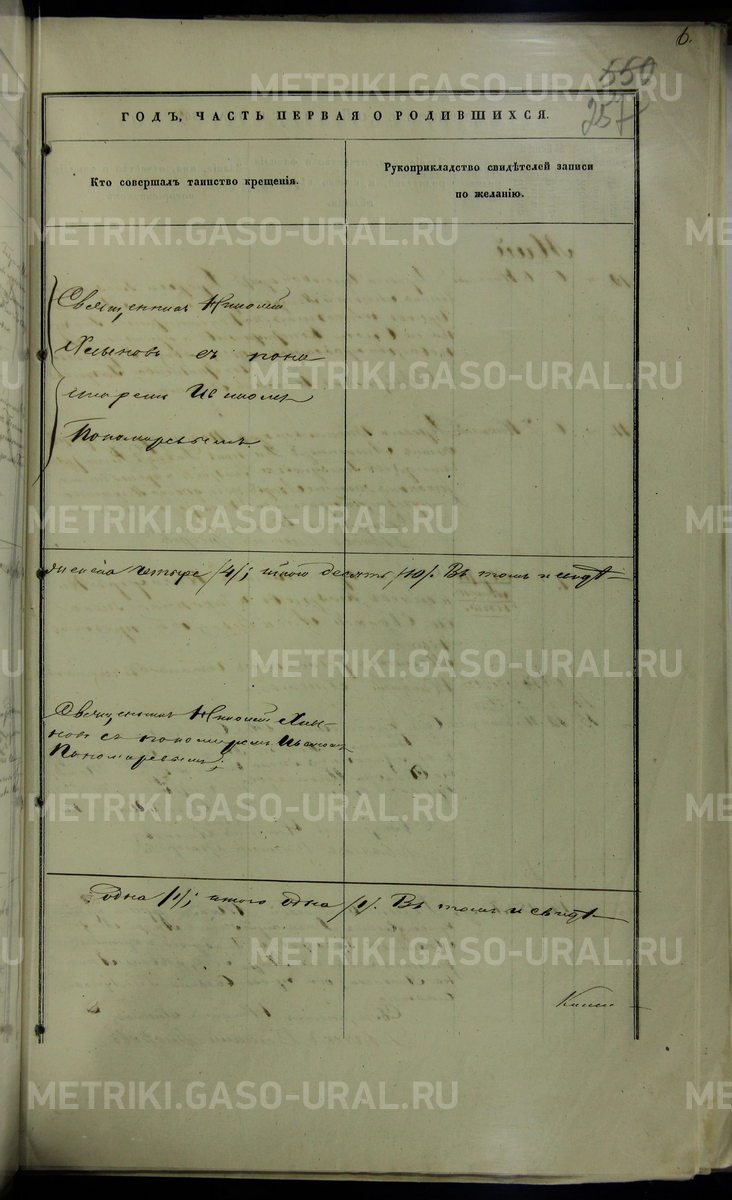 6.
550
257
ГОДЪ, ЧАСТЬ ПЕРВАЯ О РОДИВШИХСЯ.
Кто совершалъ таинство крещенія.
Рукоприкладство свидѣтелей записи
по желанію.
Священникъ Николай
Хлыновъ съ поно
маремъ Иваномъ
Пономаревымъ.
четыре /4/; итого десять /10/. Въ томъ и свидѣ
Священникъ Николай Хлы-
новъ съ пономаремъ Иваномъ
Пономаревымъ;
одна /1/; итого одна /1/. Въ томъ и свидѣ
METRIKI.GASO-URAL.RU